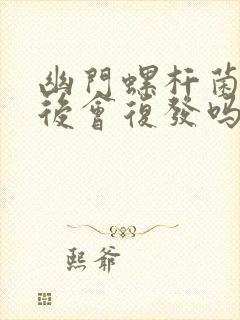 幽門螺杆菌
後會復發嗎
熙爺